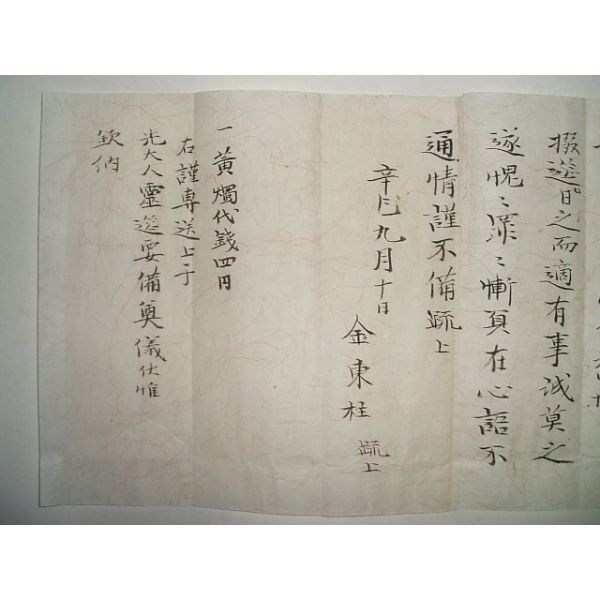 掇遊日之而適有事誠莫之
遂愧〻深〻慚負在心諮不
通情謹不備疏上
辛巳九月十日
金東柱 疏上
一黃燭代錢四円
右謹專送上于
先大人靈筵要備奠儀仕惟
欽納